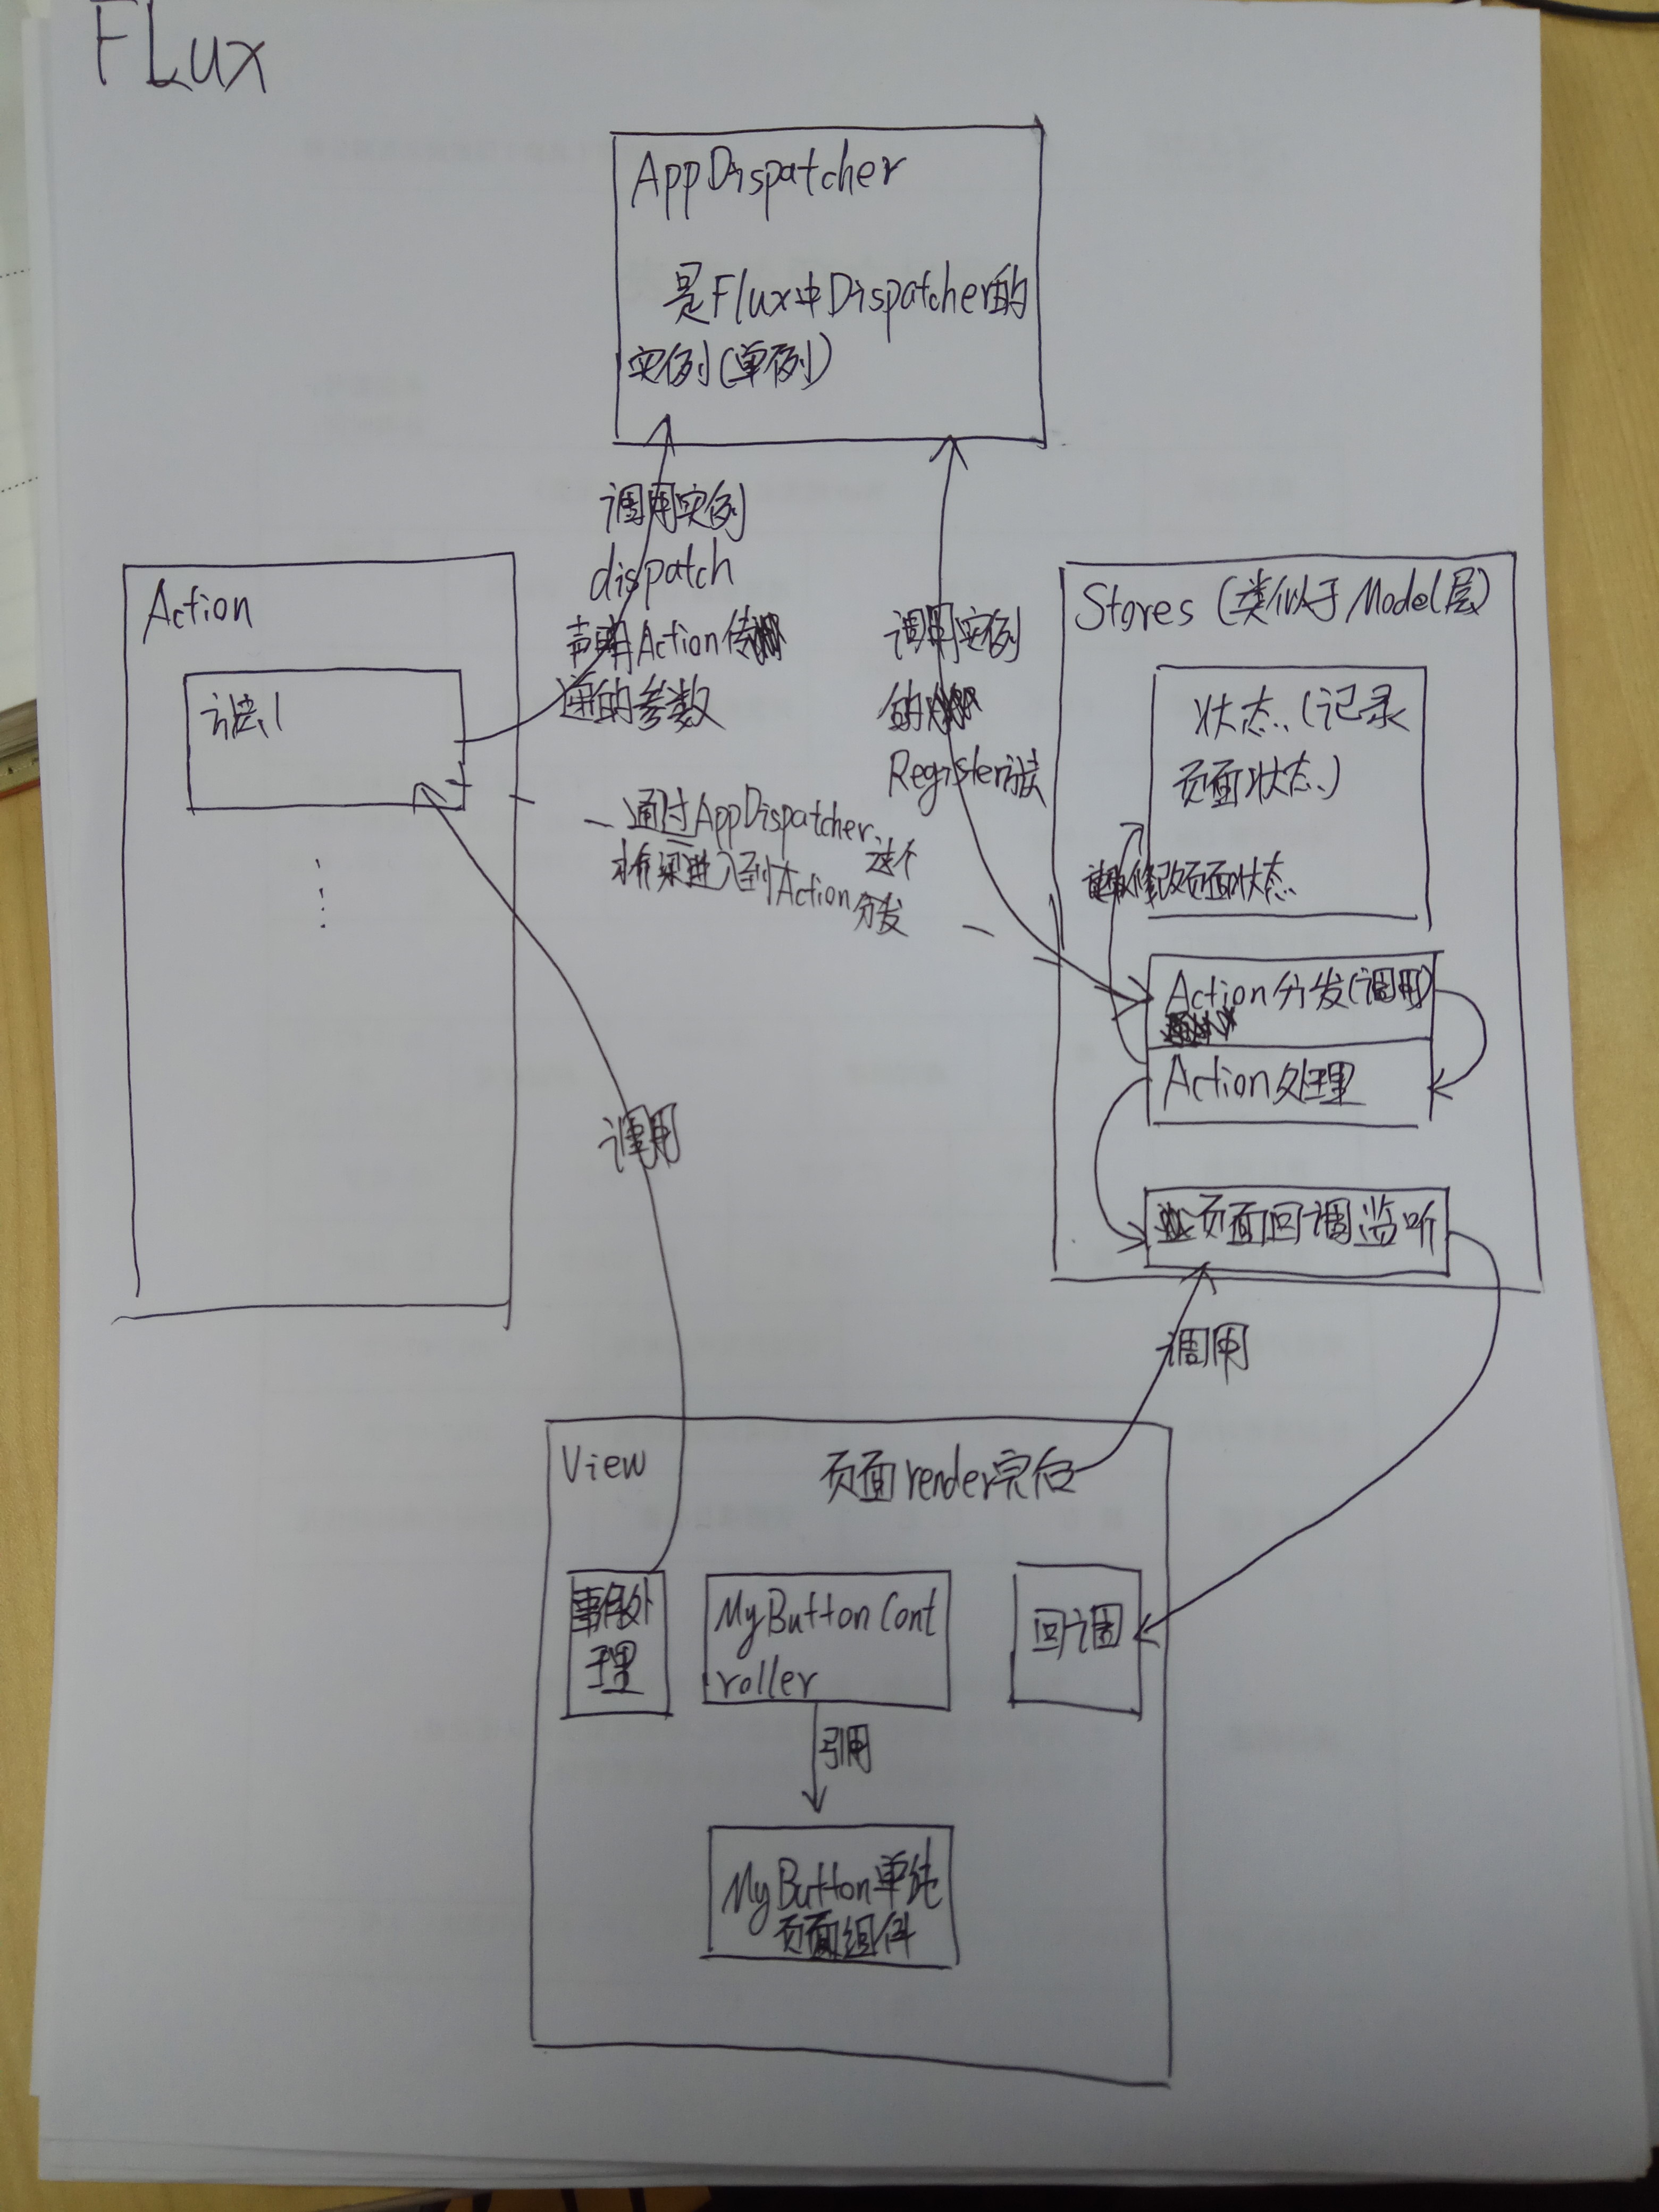 FLux
AppDispatcher
是Flux中Dispatcher的
实例(单例)
调用实例
dispatch
声明Action传
递的参数
调用实例
的
Register方法
Action
方法1
通过AppDispatcher这个
桥梁进入到Action分发
Stores (类似于Model层)
状态(记录
页面状态)
修改页面状态
Action分发(调用)
Action处理
页面回调监听
调用
调用
View
页面render完后
事件处
理
MyButtonCont
roller
回调
引用
MyButton单纯
页面组件